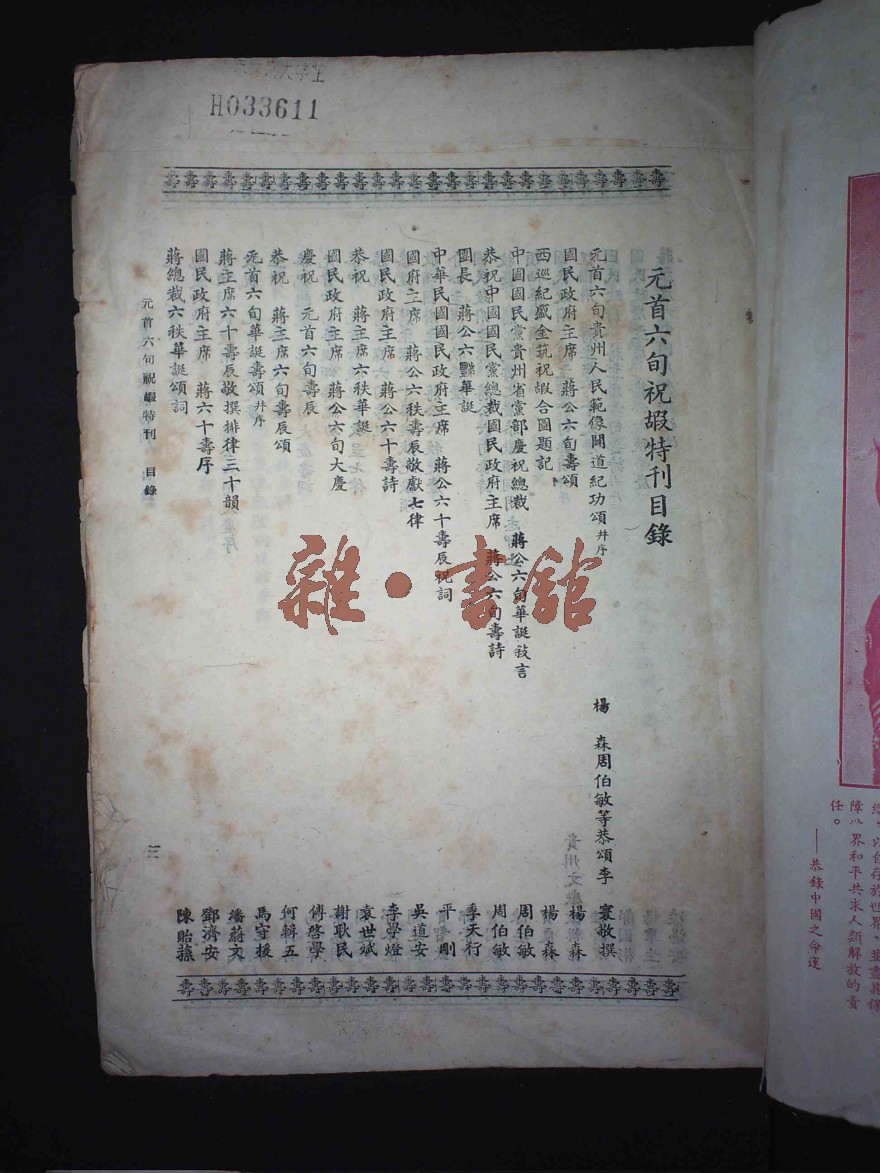 H033611
元首六旬祝嘏特刊目錄
元首六旬貴州人民範像開道紀功頌并序 楊 森周伯敏等恭頌李 寰敬撰
國民政府主席 蔣公六旬壽頌 楊 森
西巡紀盛金筑祝嘏合圖題記 楊 森
中國國民黨貴州省黨部慶祝總裁 蔣公六旬華誕敍言 周伯敏
恭祝中國國民黨總裁國民政府主席 蔣公六旬壽詩 周伯敏
團長 蔣公六豒華誕 季天行
中華民國國民政府主席 蔣公六十壽辰祝詞 平 剛
國府主席 蔣公六秩壽辰敬獻七律 吳道安
國民政府主席 蔣公六十壽詩 李學燈
恭祝 蔣主席六秩華誕 袁世斌
國民政府主席 蔣公六旬大慶 謝耿民
慶祝 元首六旬壽辰 傅啓學
恭祝 蔣主席六旬壽辰頌 何輯五
元首六旬華誕壽頌并序 馬守援
蔣主席六十壽辰敬撰排律三十韻 潘蔚文
國民政府主席 蔣六十壽序 鄧濟安
蔣總裁六秩華誕頌詞 陳貽蓀
元首六旬祝嘏特刊 目錄
雜·書館
以自存於世界，並盡其保
障世界和平共求人類解放的責
任。
——恭錄中國之命運